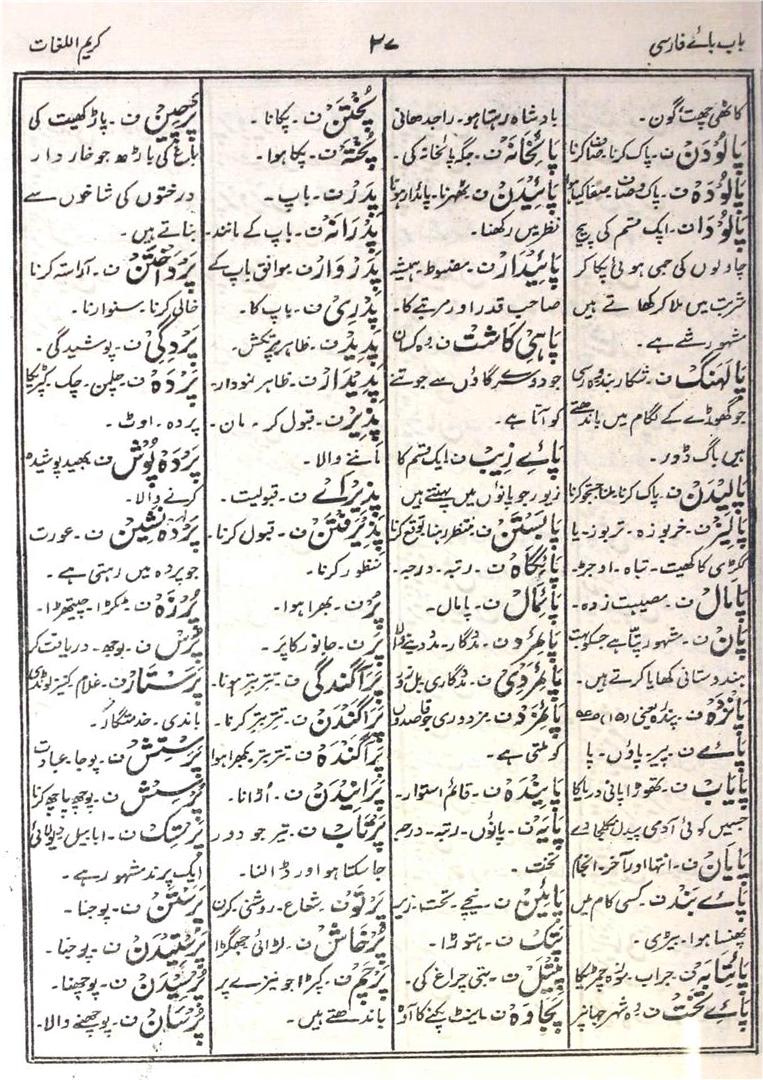 باب بائے فارسی
۲۷
کریم اللغات
کاٹھی چھت گون۔
پالُودَن ف۔ پاک کرنا۔ صاف کرنا
پالُودَہ ف۔ پاک و صاف صفا کیا ہوا
پالُودا ف۔ ایک قسم کی پیچ
چاولوں کی جمی ہوئی پکا کر
شربت میں ملا کر کھاتے ہیں
مشہور شے ہے۔
پالَہنگ ف۔ شکار بند وہ رسی
جو گھوڑے کے لگام میں باندھتے
ہیں باگ ڈور۔
پالِیدَن ف۔ پاک کرنا
پالِیز ف۔ خربوزہ۔ تربوز۔ یا
ککڑی کا کھیت۔ تباہ۔ اوجڑ۔
پامال ف۔ مصیبت زدہ۔
پان ف۔ مشہور پتا ہے جسکو بہت
ہندوستانی کھایا کرتے ہیں۔
پانزدہ ف۔ پندرہ یعنی (۱۵)
پائے ف۔ پیر۔ پاؤں۔ پا
پایاب ف۔ تھوڑا پانی دریا کا
جسمیں کوئی آدمی پیدل چلا جاوے
پایان ف۔ انتہا اور آخر۔ انجام
پائے بَند ف۔ کسی کام میں
پھنسا ہوا۔ بیڑی۔
پائتابہ ف۔ جراب۔
پائے تَخت ف۔ وہ شہر جہانپر
بادشاہ رہتا ہو۔ راجدھانی
پائخانَہ ف۔ جگہ پائخانہ کی۔
پائِیدَن ف۔ ٹھہرنا۔ پائدار ہونا
نظر میں رکھنا۔
پائِیدار ف۔ مضبوط ہمیشہ
صاحب قدر اور مرتبے کا۔
پاہی کاشت ف۔ وہ کسان
جو دوسرے گاؤں سے جوتنے
کو آتا ہے۔
پائے زیب ف۔ ایک قسم کا
زیور جو پانوں میں پہنتے ہیں
پابَستَن ف۔ منتظر رہنا توقع کرنا
پائگاہ ف۔ رتبہ۔ درجہ۔
پائمال ف۔ پامال۔
ف۔ مددگار۔ مدد دینے والا
ف۔ مددگاری
ف۔ مزدوری جو قاصدوں
کو ملتی ہے۔
پایِندہ ف۔ قائم استوار۔
پایہ ف۔ پانوں۔ رتبہ۔ درجہ
تخت۔
پائِین ف۔ نیچے۔ تحت۔ زیر
پُتک ف۔ ہتوڑا۔
ف۔ بتی چراغ کی۔
پَجاوہ ف۔ اینٹ پکنے کا آوہ
پُختَن ف۔ پکانا۔
پُختَہ ف۔ پکا ہوا۔
پِدَر ف۔ باپ۔
پِدَرانَہ ف۔ باپ کے مانند۔
پِدَر وار ف۔ موافق باپ کے
پِدَری ف۔ باپ کا۔
پدید ف۔ ظاہر
پَدِیدار ف۔ ظاہر نمودار۔
پِذیر ف۔ قبول کر۔ مان۔
ماننے والا۔
پِذیرائے ف۔ قبولیت۔
پِذیرُفتَن ف۔ قبول کرنا۔
منظور کرنا۔
پُر ف۔ بھرا ہوا۔
پَر ف۔ جانور کا پر۔
پَراگَندگی ف۔ تتر بتر ہونا۔
پَراگَندَن ف۔ تتر بتر کرنا۔
پَراگَندَہ ف۔ تتر بتر بکھرا ہوا
پَرانِیدَن ف۔ اُڑانا۔
پَرتاب ف۔ تیر جو دور
جا سکتا ہو اور ڈالنا۔
پَرتَو ف۔ شعاع۔ روشنی۔ کرن
پَرخاش ف۔ لڑائی جھگڑا
پَرچَم ف۔ کپڑا جو نیزے پر
باندھتے ہیں۔
پَرچِین ف۔ پاڑ کھیت کی
باغ کی باڑھ جو خاردار
درختوں کی شاخوں سے
بناتے ہیں۔
پَرداختَن ف۔ آراستہ کرنا
خالی کرنا۔ سنوارنا۔
پَردگی ف۔ پوشیدگی۔
پَردَہ ف۔ چلمن۔ چک۔ کپڑیکا
پردہ۔ اوٹ۔
پَردَہ پوش ف۔ بھید پوشیدہ
کرنے والا۔
پَردَہ نشین ف۔ عورت
جو پردہ میں رہتی ہے۔
پُرزَہ ف۔ ٹکڑا۔ چیتھڑا۔
پُرس ف۔ پوچھ۔ دریافت کر
پَرَستار ف۔ غلام کنیز لونڈی
باندی۔ خدمتگار۔
پَرَستِش ف۔ پوجا۔ عبادت
پُرسِش ف۔ پوچھ پاچھ کرنا
پَرَستُک ف۔ ابابیل
ایک پرند مشہور ہے۔
پَرَستَن ف۔ پوجنا۔
پَرَستِیدَن ف۔ پوجنا۔
پُرسِیدَن ف۔ پوچھنا۔
پُرسان ف۔ پوچھنے والا۔